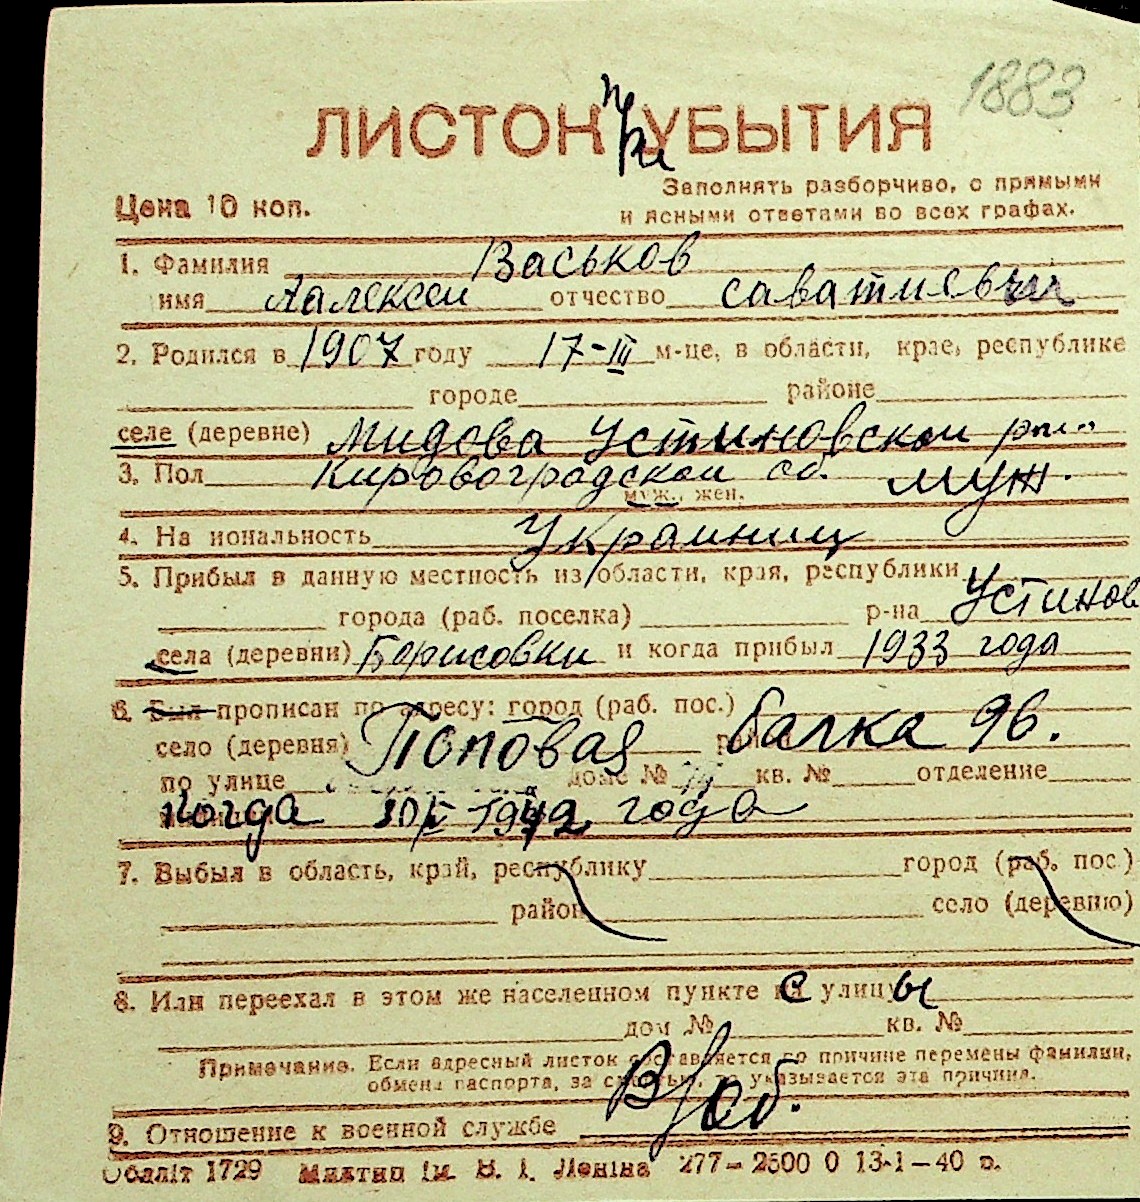 1883
ЛИСТОК при УБЫТИЯ
Цена 10 коп.
Заполнять разборчиво, с прямыми
и ясными ответами во всех графах.
1. Фамилия Васьков
имя Аалексеи отчество саватиевич
2. Родился в 1907 году 17-III м-це, в области, крае, республике
городе районе
селе (деревне) Мидова Устиновскои
3. Пол Кировоградскои об. муж.
муж., жен.
4. На иональность Украиниц
5. Прибыл в данную местность из области, края, республики
города (раб. поселка) р-на Устинов
села (деревни) Борисовки и когда прибыл 1933 года
6. Был прописан по адресу: город (раб. пос.)
село (деревня) Поповая балка 96.
по улице доме № кв. № отделение
Когда 10/I-1942 года
7. Выбыл в область, край, республику город (раб. пос.)
район село (деревню)
8. Или переехал в этом же населенном пункте с улицы
дом № кв. №
Примечание. Если адресный листок составляется по причине перемены фамилии,
обмена паспорта, за смертью, то указывается эта причина.
В/об.
9. Отношение к военной службе
Обліт 1729 ім. В. І. Леніна 277–2500 0 13-1–40 р.